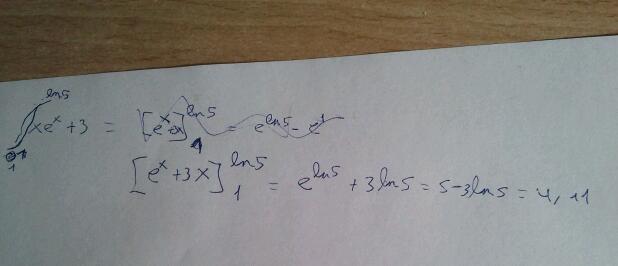 ∫₁^{ln5} xe^x + 3 = [e^x]₁^{ln5} = e^{ln5} - e^1
[e^x + 3x]₁^{ln5} = e^{ln5} + 3ln5 = 5 - 3ln5 = 4,11